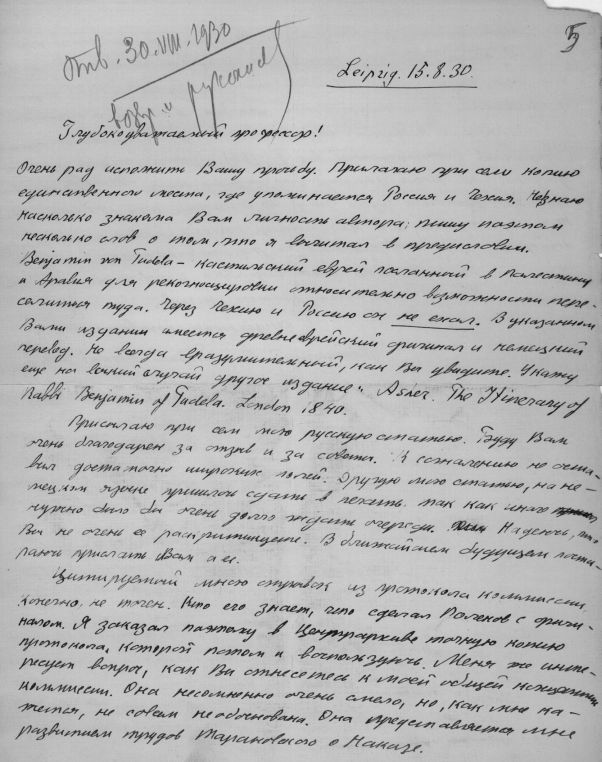 5
отв. 30.VIII.1930
Leipzig. 15.8.30.
Глубокоуважаемый профессор!
Очень рад исполнить Вашу просьбу. Прилагаю при сем копию
единственного места, где упоминается Россия и Чехия. Не знаю
насколько знакома Вам личность автора; пишу поэтому
несколько слов о том, что я вычитал в предисловии.
Benjamin von Tudela – кастильский еврей посланный в Палестину
и Аравия для рекогносцировки относительно возможности пере-
селиться туда. Через Чехию и Россию он не ехал. В указанном
Вами издании имеется древнееврейский оригинал и немецкий
перевод. Не всегда вразумительный, как Вы увидите. Укажу
еще на всякий случай другое издание: Asher. The Itinerary of
Rabbi Benjamin of Tudela. London 1840.
Присылаю при сем мою русскую статью. Буду Вам
очень благодарен за отзыв и за советы. К сожалению не оста-
вил достаточно широких полей. Другую мою статью, на не-
мецком языке пришлось сдать в печать. так как иначе
нужно было бы очень долго ждать очереди. Надеюсь, что
Вы не очень ее раскритикуете. В ближайшем будущем поста-
раюсь прислать Вам и ее.
Цитируемый мною отрывок из протокола комиссии,
конечно, не точен. Кто его знает, что сделал Поленов с ориги-
налом. Я заказал поэтому в Центрархиве точную копию
протокола, которой потом и воспользуюсь. Меня же инте-
ресует вопрос, как Вы отнесетесь к моей общей концепции
комиссии. Она несомненно очень смела, но, как мне ка-
жется, не совсем необоснована. Она представляется мне
развитием трудов Тарановского о Наказе.